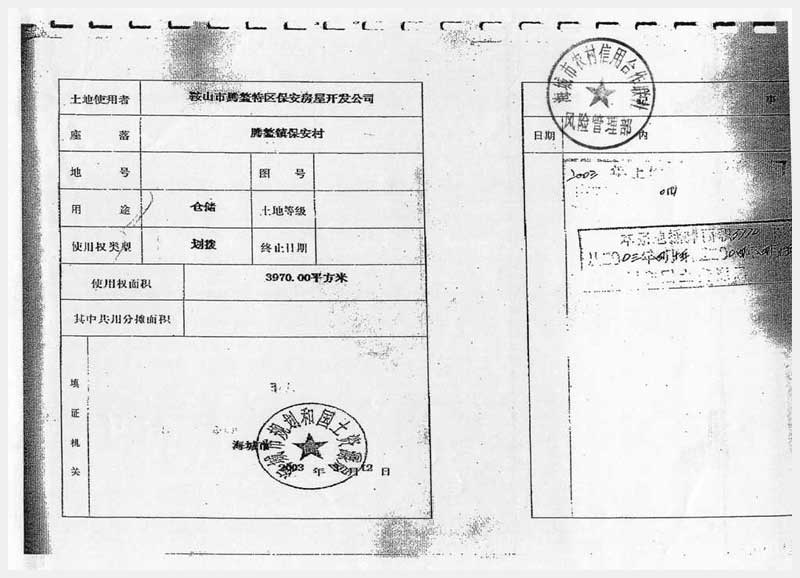 土地使用者 鞍山市腾鳌特区保安房屋开发公司
座 落 腾鳌镇保安村
地 号 图 号
用 途 仓储 土地等级
使用权类型 划拨 终止日期
使用权面积 3970.00平方米
其中共用分摊面积
填证机关
海城市
海城市规划和国土资源局
2003 年 月12 日
海城市农村信用合作联社
风险管理部
事
日期 内
2003 年上